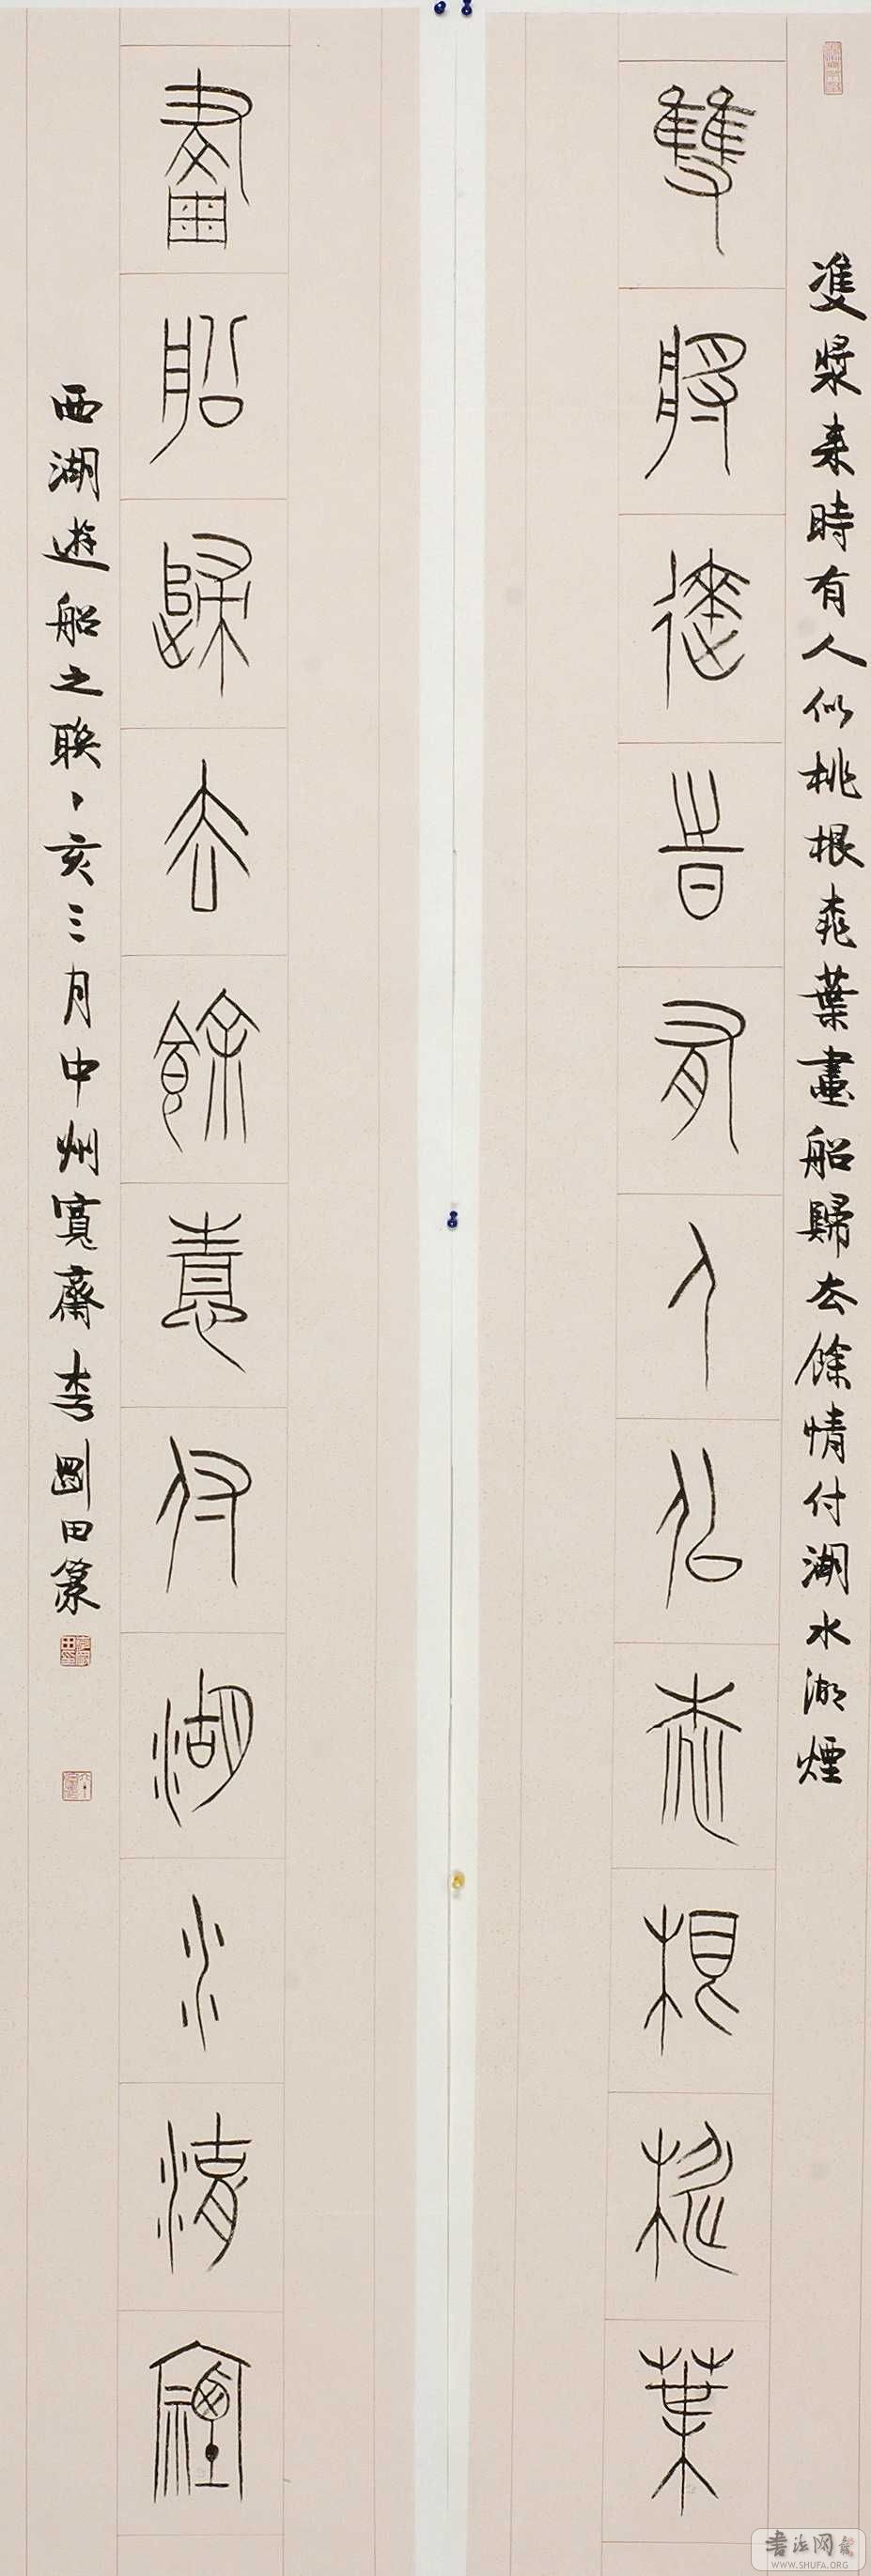 雙槳來時有人似桃根桃葉畫船歸去餘情付湖水湖煙
雙將徠時有人似桃根桃葉
畫船歸去餘情付湖水湖煙
西湖遊船之聯亥三月中州寬齋李剛田篆
书法网
WWW.SHUFA.ORG